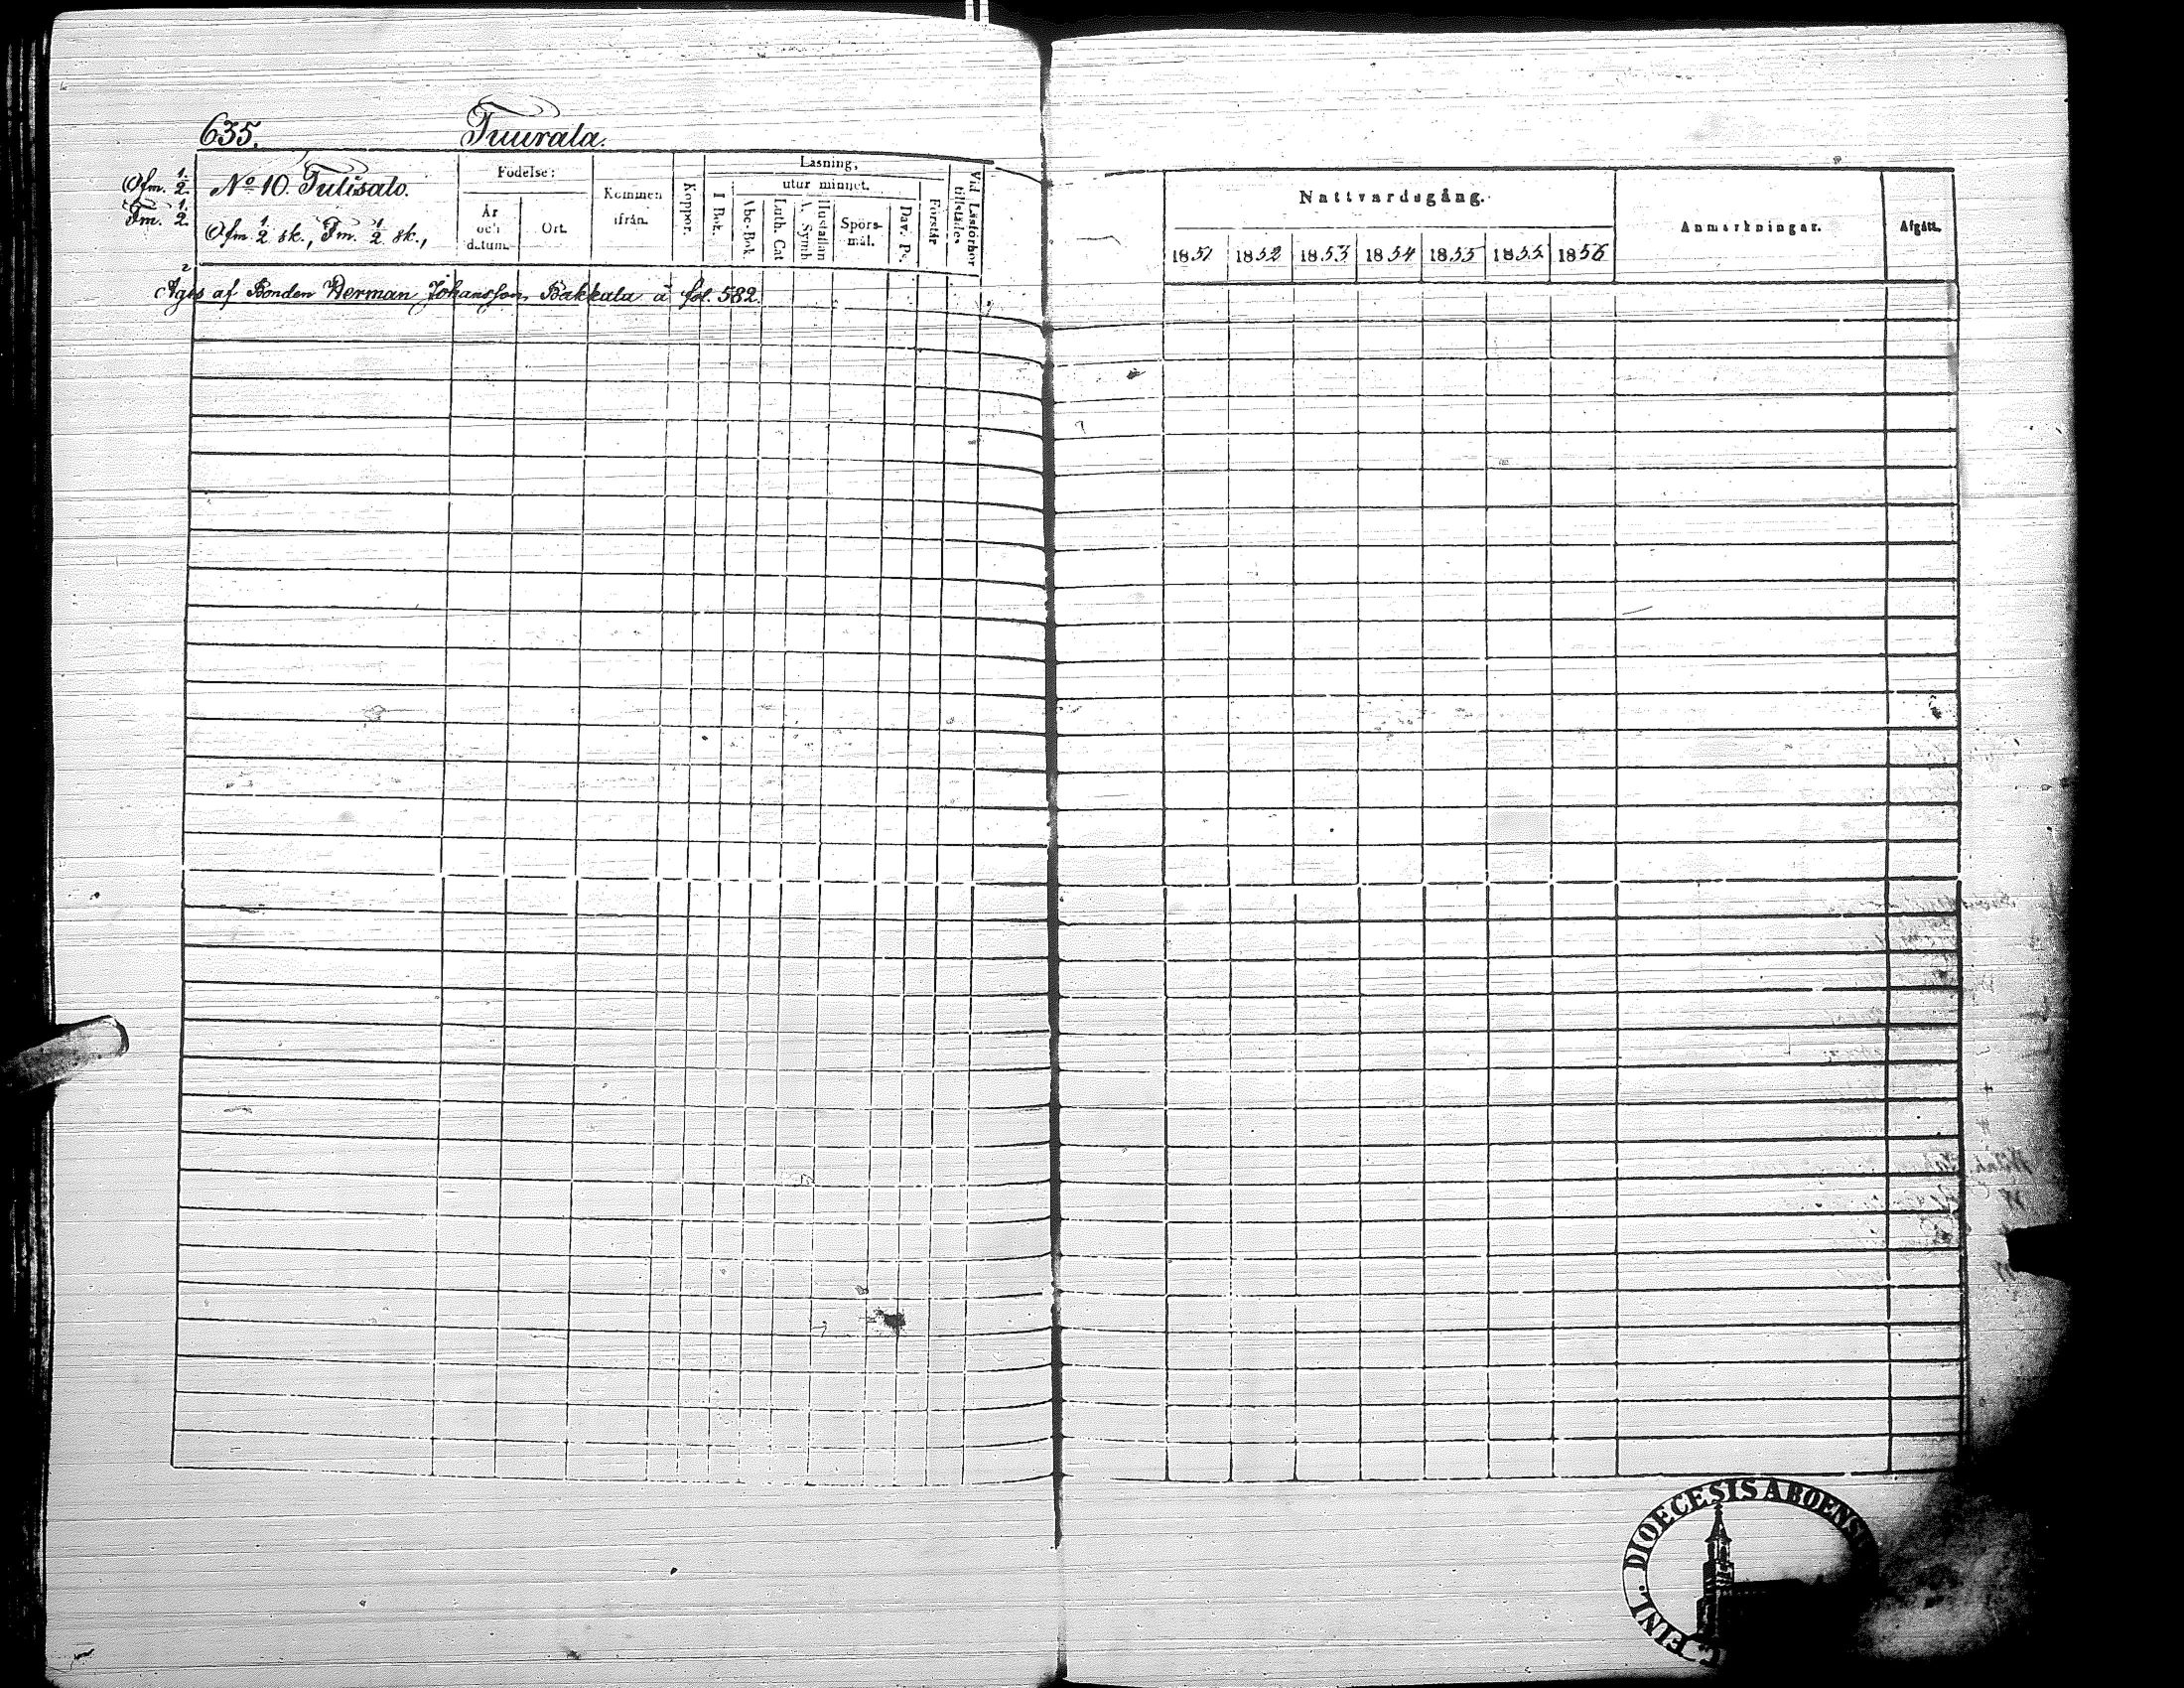 635.
Tuurala.
Ofm. 1/2.
Fm. 1/2.
No 10. Tulisalo.
Ofm. 1/2 sk., Fm. 1/2 sk.,
Födelse:
År och datum.
Ort.
Kommen ifrån.
Koppor.
Läsning,
I Bok.
utur minnet.
Abc-Bok.
Luth. Cat
Hustaflan A. Symb
Spörs-mål.
Dav. Ps.
Förstår
Vid Läsförhör tillstädes
Äges af Bonden Herman Johansson Bakkala å fol. 582.
Nattvardsgång.
1851 1852 1853 1854 1855 1855 1856
Anmärkningar.
Afgått.
FINL. DIOECESIS ABOENSI